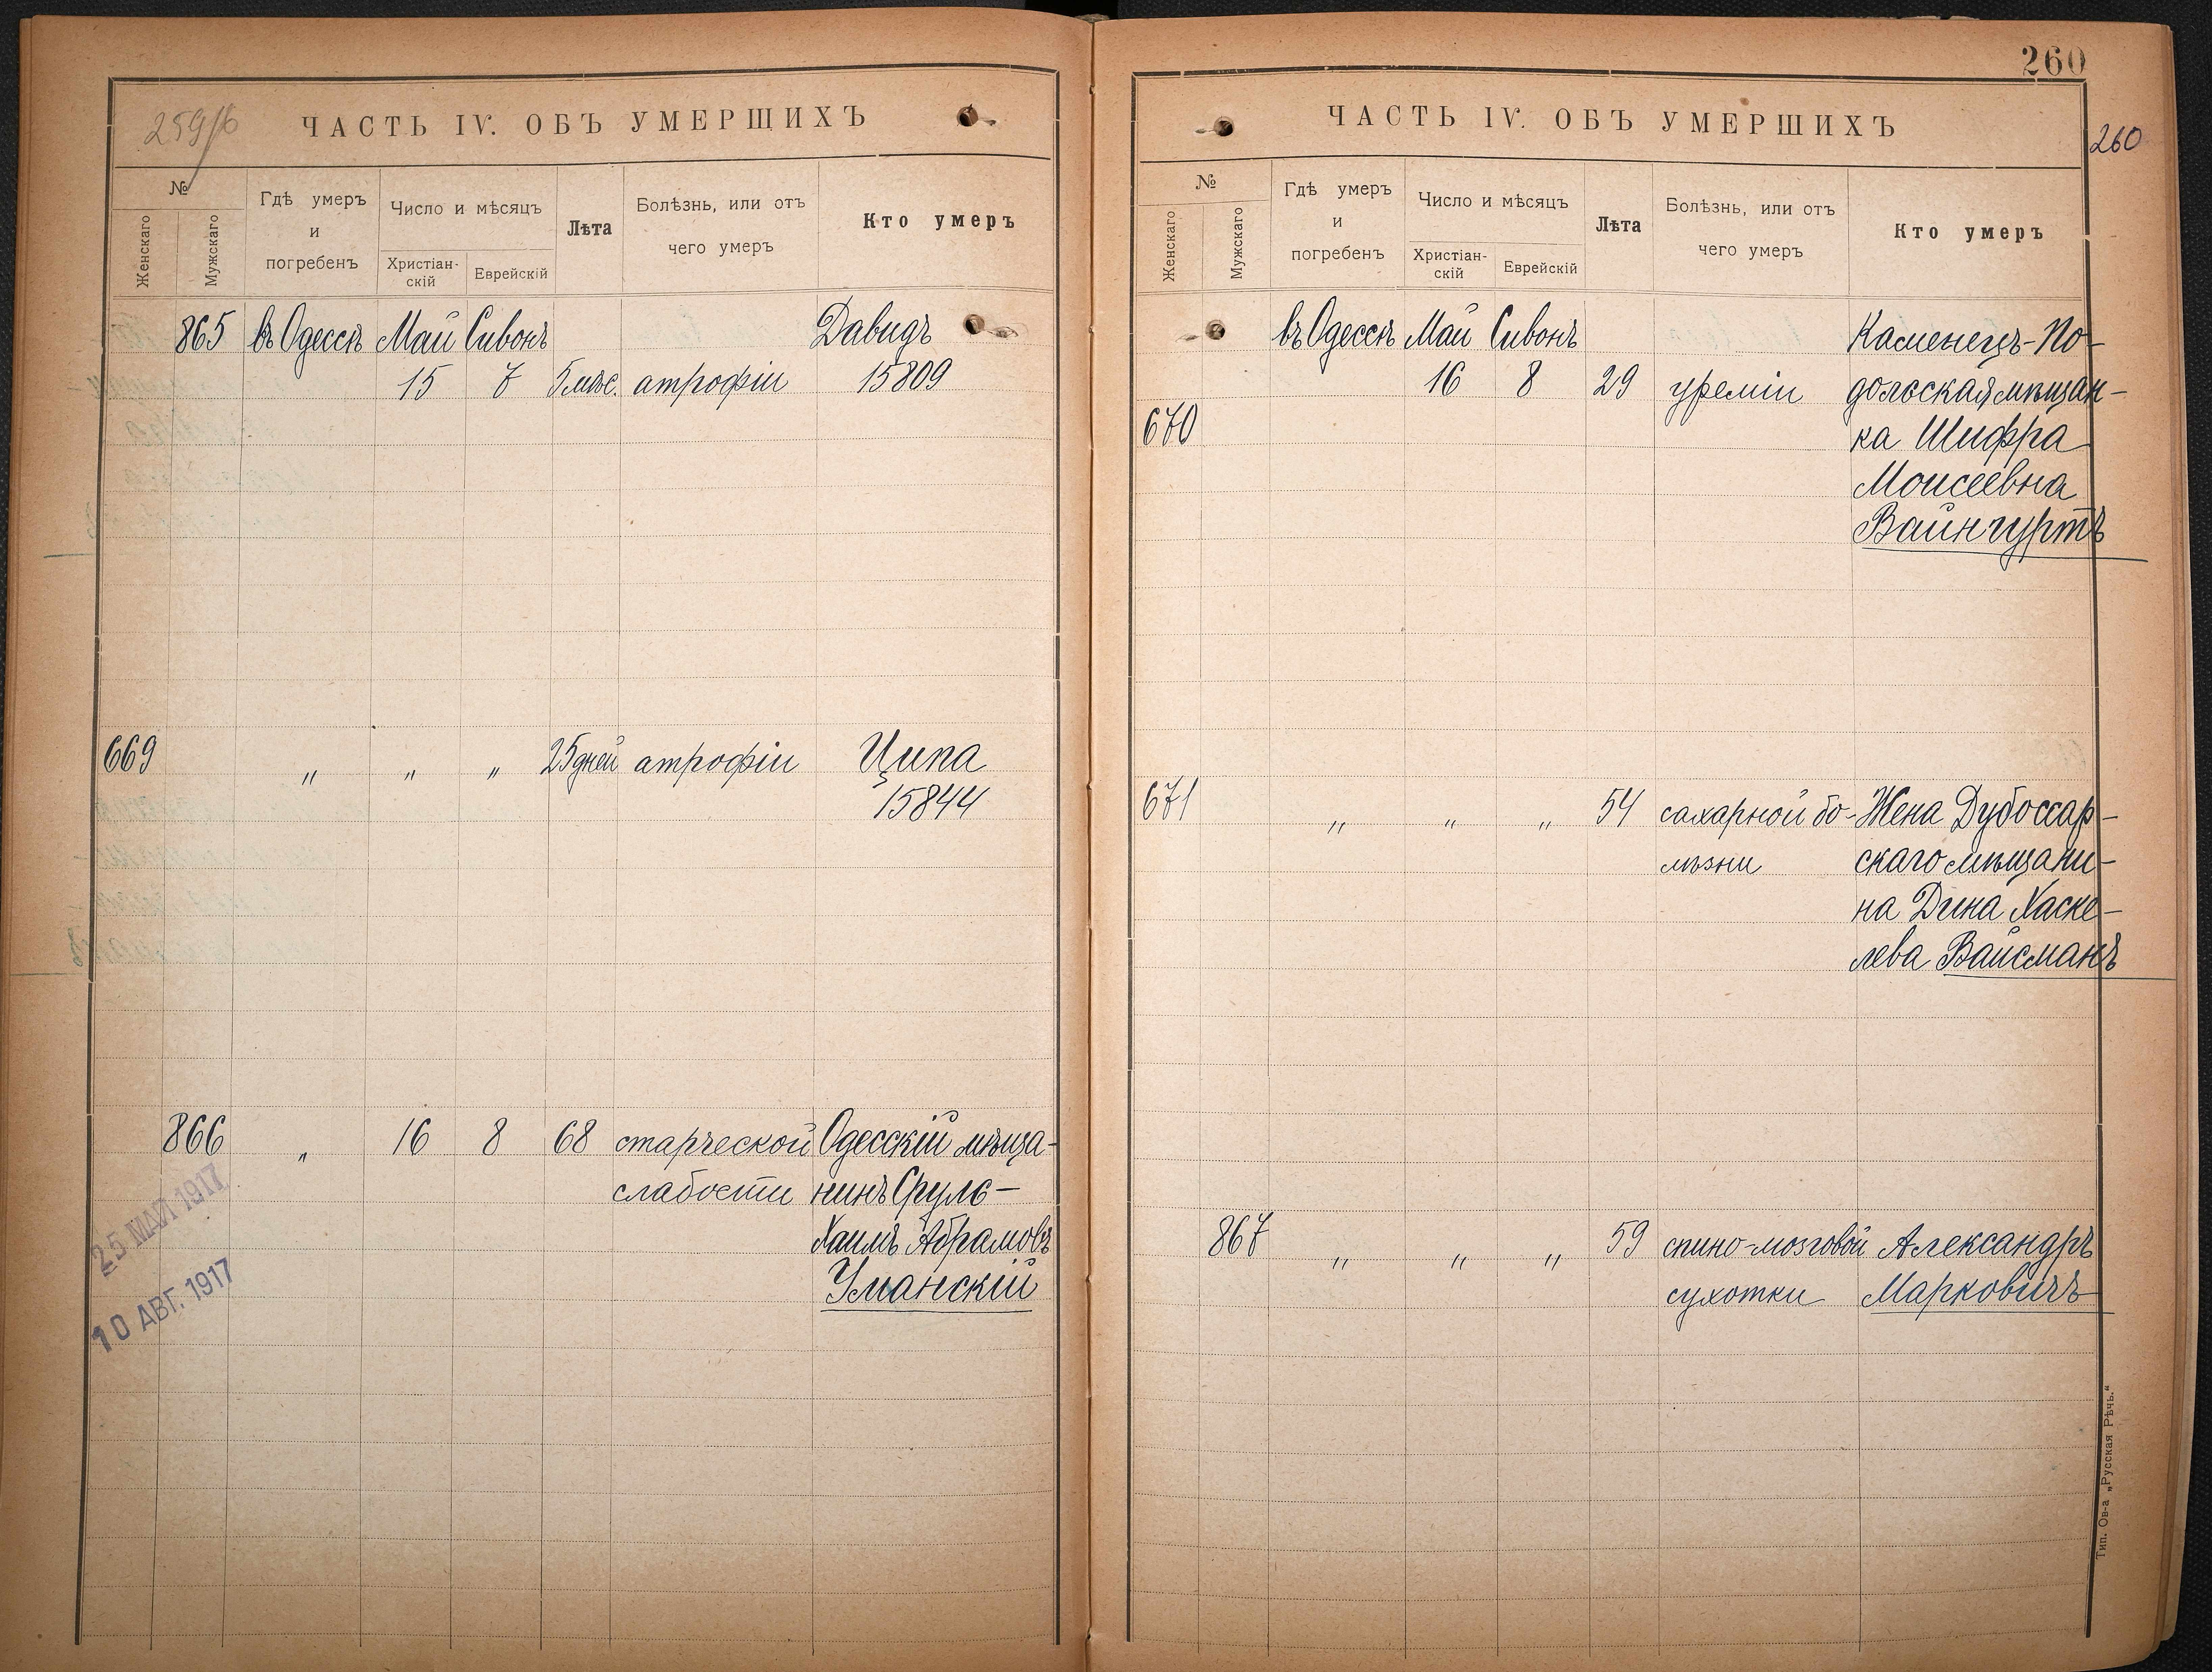 259/б
ЧАСТЬ IV. ОБЪ УМЕРШИХЪ
№
Женскаго
Мужскаго
Гдѣ умеръ
и
погребенъ
Число и мѣсяцъ
Христіан-
скій
Еврейскій
Лѣта
Болѣзнь, или отъ
чего умеръ
Кто умеръ
865 въ Одессѣ Май Сивонъ Давидъ
15 7 5 мѣс. атрофіи 15809
669 " " " 25 дней атрофіи Ципа
15844
866 " 16 8 68 старческой Одесскій мѣща-
слабости нинъ Сруль-
Хаимъ Абрамовъ
Уманскій
25 МАЙ 1917
10 АВГ. 1917
260
260
ЧАСТЬ IV. ОБЪ УМЕРШИХЪ
№
Женскаго
Мужскаго
Гдѣ умеръ
и
погребенъ
Число и мѣсяцъ
Христіан-
скій
Еврейскій
Лѣта
Болѣзнь, или отъ
чего умеръ
Кто умеръ
въ Одессѣ Май Сивонъ Каменецъ-По-
16 8 29 уреміи дольская мѣщан-
670 ка Шифра
Моисеевна
Вайнгуртъ
671 " " " 54 сахарной бо- Жена Дубоссар-
лѣзни скаго мѣщани-
на Дина Хаске-
лева Вайсманъ
867 " " " 59 спино-мозговой Александръ
сухотки Марковичъ
Тип. Ов-а „Русская Рѣчь."